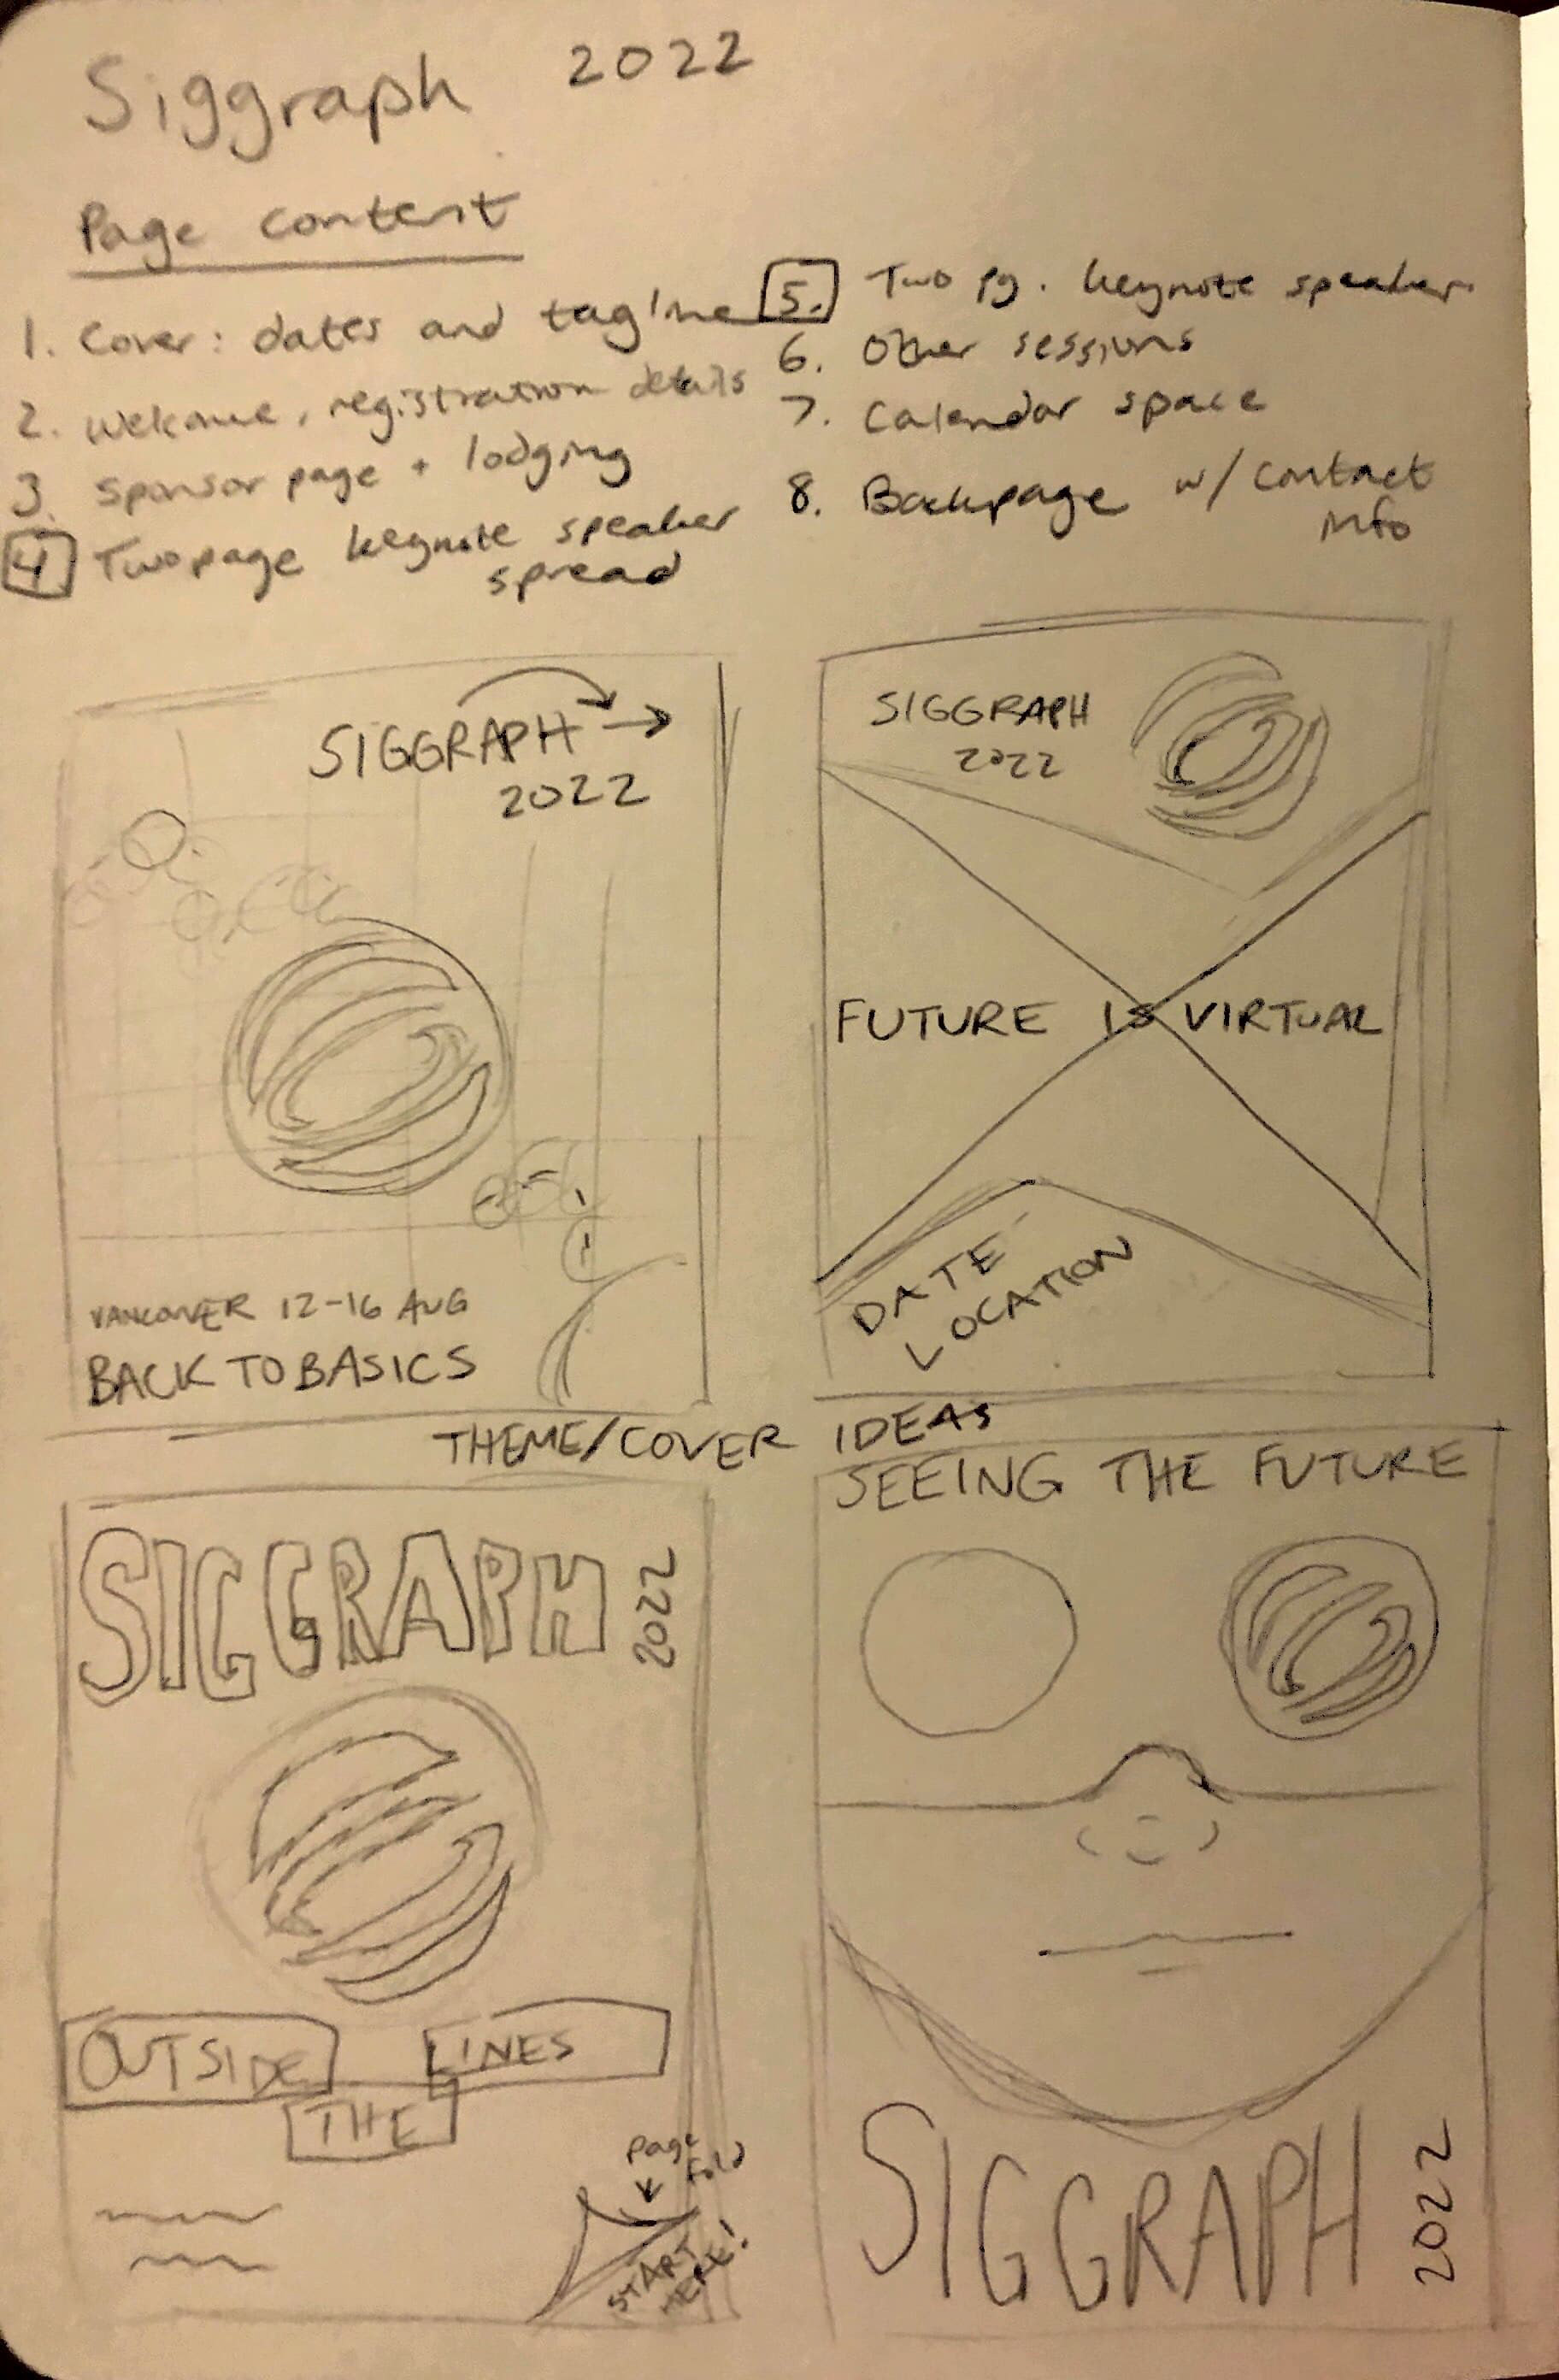 Siggraph 2022
Page content
1. Cover: dates and tagline
2. Welcome, registration details
3. Sponsor page + lodging
4. Two page keynote speaker
spread
5. Two pg. keynote speaker
6. Other sessions
7. Calendar space
8. Backpage w/ contact
info
SIGGRAPH
2022
VANCOUVER 12-16 AUG
BACK TO BASICS
SIGGRAPH
2022
FUTURE IS VIRTUAL
DATE
LOCATION
THEME/COVER IDEAS
SIGGRAPH 2022
OUTSIDE LINES
THE
Page
Fold
START
HERE!
SEEING THE FUTURE
SIGGRAPH 2022